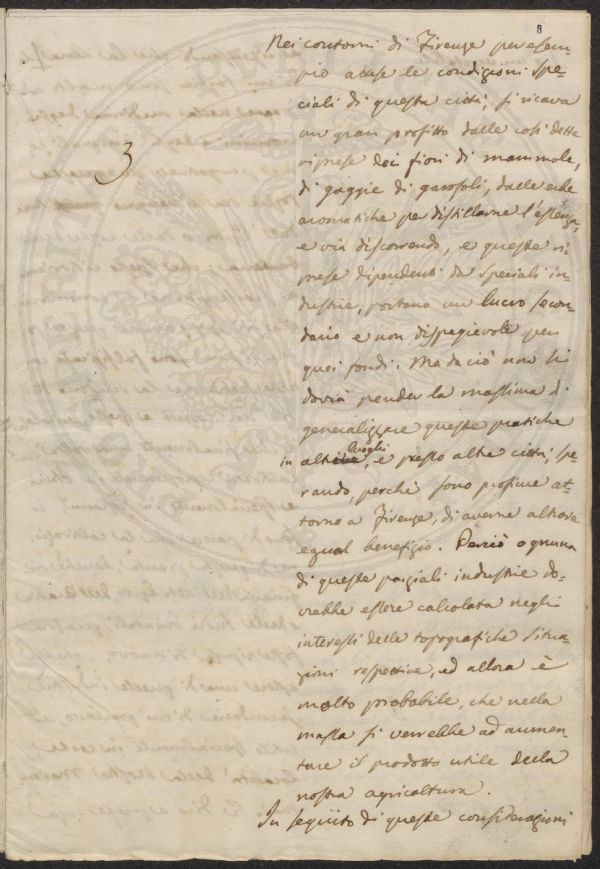 8
Nei contorni di Firenze per esem-
pio attese le condizioni spe-
ciali di questa città, si ricava
un gran profitto dalle così dette
riprese dei fiori di mammole,
di gaggie di garofoli, dalle erbe
aromatiche per distillarne l'essenza,
e via discorrendo, e queste ri-
prese dipendenti da speciali in-
dustrie, portano un lucro secon-
dario e non dispregievole per
quei fondi. Ma da ciò non si
dovrà prender la massima di
generalizzare queste pratiche
luoghi
in altri, e presso altre città, spe-
rando, perchè sono proficue at-
torno a Firenze, di averne altrove
egual benefizio. Perciò ognuna
di queste parziali industrie do-
vrebbe essere calcolata negli
interessi delle topografiche situa-
zioni respettive, ed allora è
molto probabile, che nella
massa si verrebbe ad aumen-
tare il prodotto utile della
nostra agricoltura.
In seguito di queste considerazioni
3